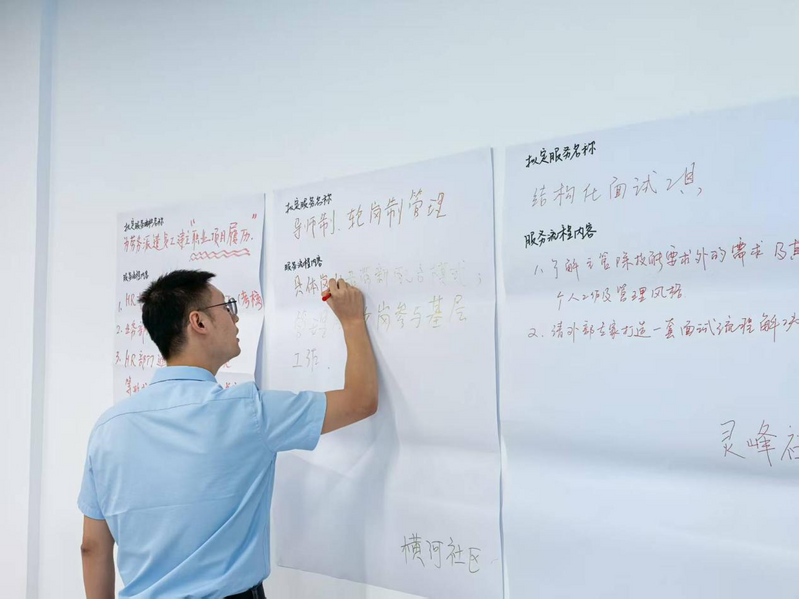 拟定服务名称
为劳务派遣员工建立"职业项目履历"
服务流程内容
1. HR
2.
3. HR部门
拟定服务名称
导师制、轮岗制管理
服务流程内容
具体岗
管理 岗参与基层
工作.
横河社区
拟定服务名称
结构化面试工具
服务流程内容
1. 了解主管除招聘需求外的需求及其
个人工作及管理风格
2. 请外部专家打造一套面试流程解决
灵峰社